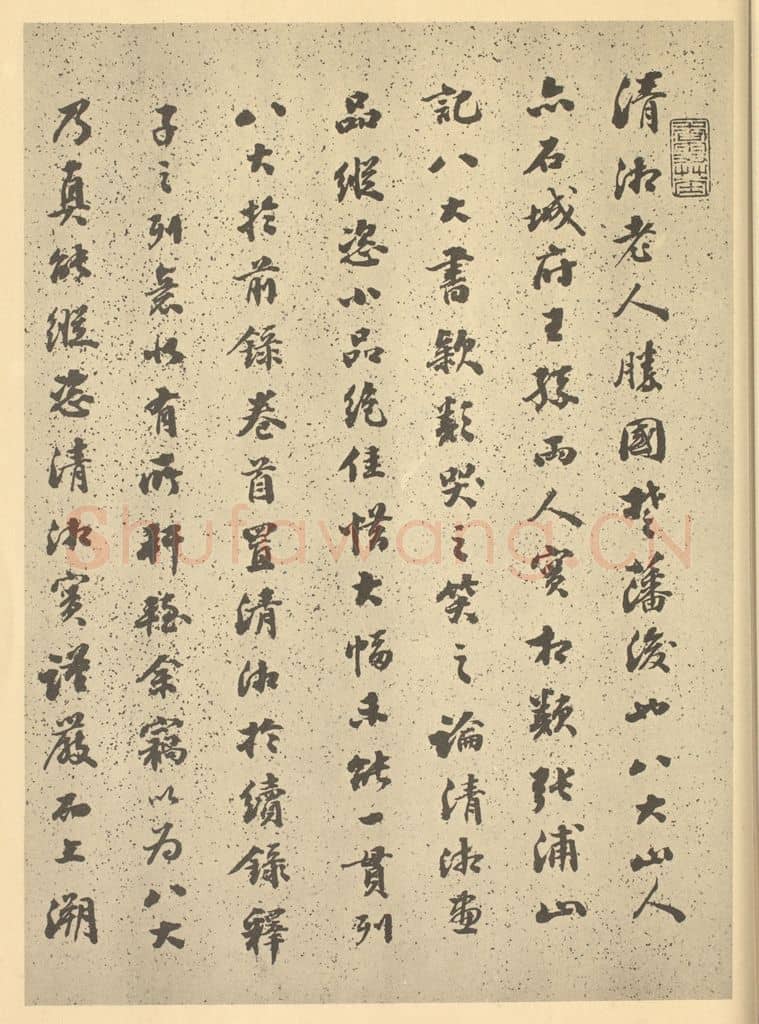 清湘老人勝國楚藩後也八大山人
亦石城府王孫兩人實相類張浦山
記八大書款類哭之笑之論清湘畫
品縱恣小品絕佳惜大幅未能一貫列
八大於前錄卷首置清湘於續錄釋
子之列意似有所軒輊余竊以為八大
乃真能縱恣清湘實謹嚴而上溯
Shufawang.CN